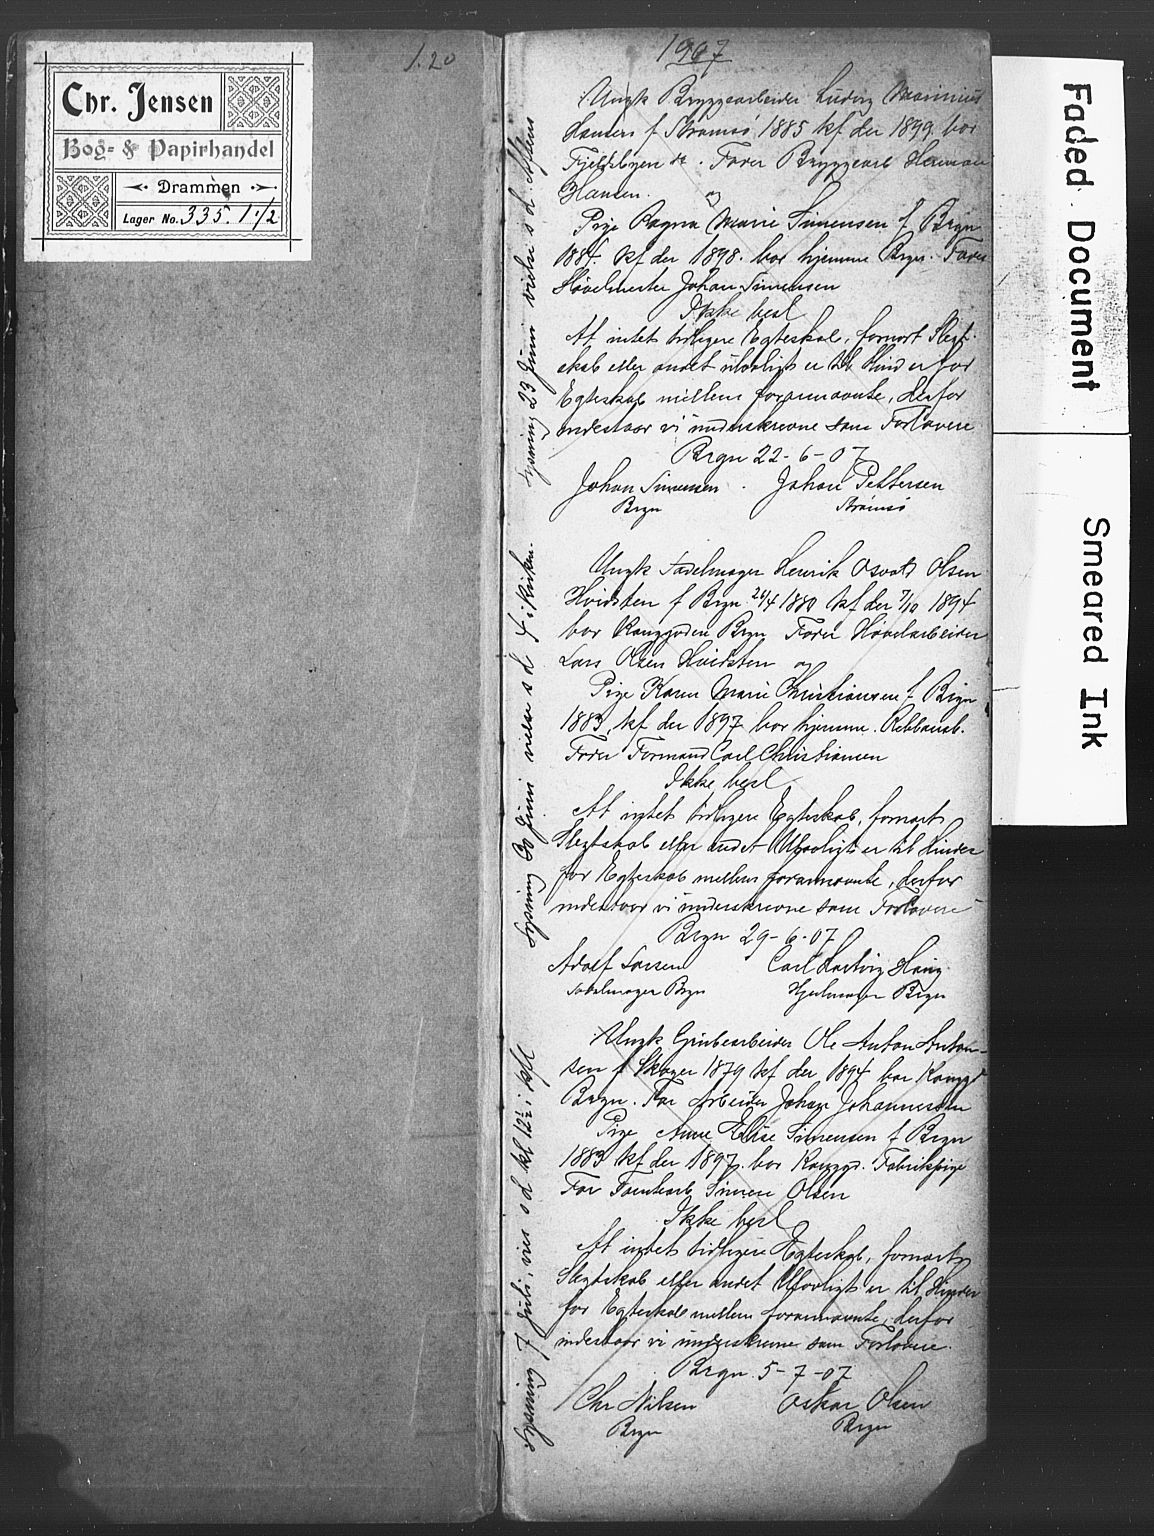 Chr. Jensen
Bog- & Papirhandel
Drammen
Lager No. 335. 1 1/2
1.20
1907
Ungk Bryggearbeider Ludvig Marinius
Hansen f Strømsø 1885 kf der 1899. bor
Fjeldsbyen . Fader Bryggearb Herman
Hansen. og
Pige Ragna Marie Simensen f Brgn
1884. kf der 1898. bor hjemme Brgn. Fader
Høvelmester Johan Simensen
Ikke besl
At intet tidligere Egteskab, fornært Slegt-
skab eller andet ulovligt er til Hinder for
Egteskab mellem forannævnte, derfor
indestaar vi underskrevne som Forlovere
Brgn 22-6-07
Johan Simensen . Johan Pettersen
Brgn Strømsø
Lysning 23 Juni vielse s d Aftens
Ungk Sadelmager Henrik Osvald Olsen
Hvidsten f Brgn 24/4 1880 kf der 7/10 1894
bor Kongsgaden Brgn Fader Høvelarbeider
Lars Olsen Hvidsten og
Pige Karen Marie Christiansen f Brgn
1883, kf der 1897 bor hjemme. Rebbansb.
Fader Formand Carl Christiansen
Ikke besl
At intet tidligere Egteskab, fornært
Slegtskab eller andet Ulovligt er til Hinder
for Egteskab mellem forannævnte, derfor
indestaar vi underskrevne som Forlovere
Brgn 29-6-07
Adolf Larsen Carl Hartvig Haug
Sadelmager Brgn Hjulmager Brgn
Lysning 30 Juni vielse s d i Kirken.
Ungk Grubearbeider Ole Anton Anton-
sen f Skoger 1879 kf der 1894 bor Kongsgd
Bragn. Far Arbeider Johan Johannessen
Pige Anne Elise Simensen f Brgn
1883 kf der 1897. bor Kongsgd. Fabrikspige
Far Tomtearb Simen Olsen
Ikke besl
At intet tidligere Egteskab, fornært
Slegtskab eller andet Ulovligt er til Hinder
for Egteskab mellem forannævnte, derfor
indestaar vi underskrevne som Forlovere.
Brgn. 5-7-07
Chr Nilsen Oskar Olsen
Brgn Brgn
Lysning 7 Juli, vies s d kl 12½ i
Faded Document
Smeared Ink